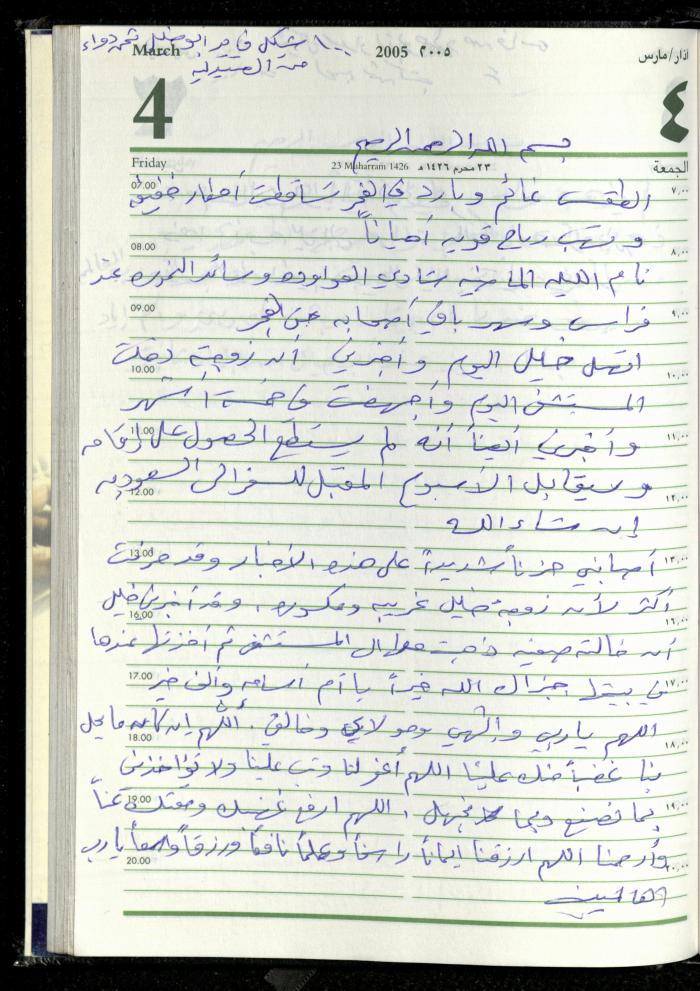 ١٠٠ شيكل فاتورة أبو خليل ثمن دواء
من الصيدلية
March
2005 ٢٠٠٥
آذار/مارس
4
٤
بسم الله الرحمن الرحيم
Friday
23 Muharram 1426 ٢٣ محرم ١٤٢٦ هـ
الجمعة
07.00 ٧,٠٠
الطقس غائم وبارد في الفجر تساقطت أمطار خفيفة
و تهب رياح قوية أحياناً
08.00 ٨,٠٠
نام الليلة الماضية شادي و وسائد عند
09.00 ٩,٠٠
فراس وسهر باقي أصحابه حتى الفجر
اتصل خليل اليوم وأخبرني أن زوجته دخلت
10.00 ١٠,٠٠
المستشفى اليوم وأجهضت خمسة أشهر
11.00 ١١,٠٠
وأخبرني أيضاً أنه لم يستطع الحصول على إقامه
وسيقابل الأسبوع المقبل للسفر إلى السعودية
12.00 ١٢,٠٠
إن شاء الله
13.00 ١٣,٠٠
أصابني حزناً شديداً على هذه الأخبار وقد حزنت
أكثر لأن زوجة خليل غريبه ومكسورة، وقد أخبرني خليل
16.00 ١٦,٠٠
أن خالته صفية ذهبت معها إلى المستشفى ثم أخذتها عندها
17.00 ١٧,٠٠
في بيتها جزاك الله خيراً يا أم أسامه وألف خير
اللهم ياربي وإلهي ومولاي وخالقي. اللهم إن كان ما يحل
18.00 ١٨,٠٠
بنا غضباً منك علينا اللهم أغفر لنا وتب علينا ولا تؤاخذني
19.00 ١٩,٠٠
بما نصنع وبما نجهل، اللهم ارفع غضبك ومقتك عنا
وأرحمنا اللهم ارزقنا إيماناً راسخاً وعلماً نافعاً ورزقاً واسعاً يارب
20.00 ٢٠,٠٠
العالمين